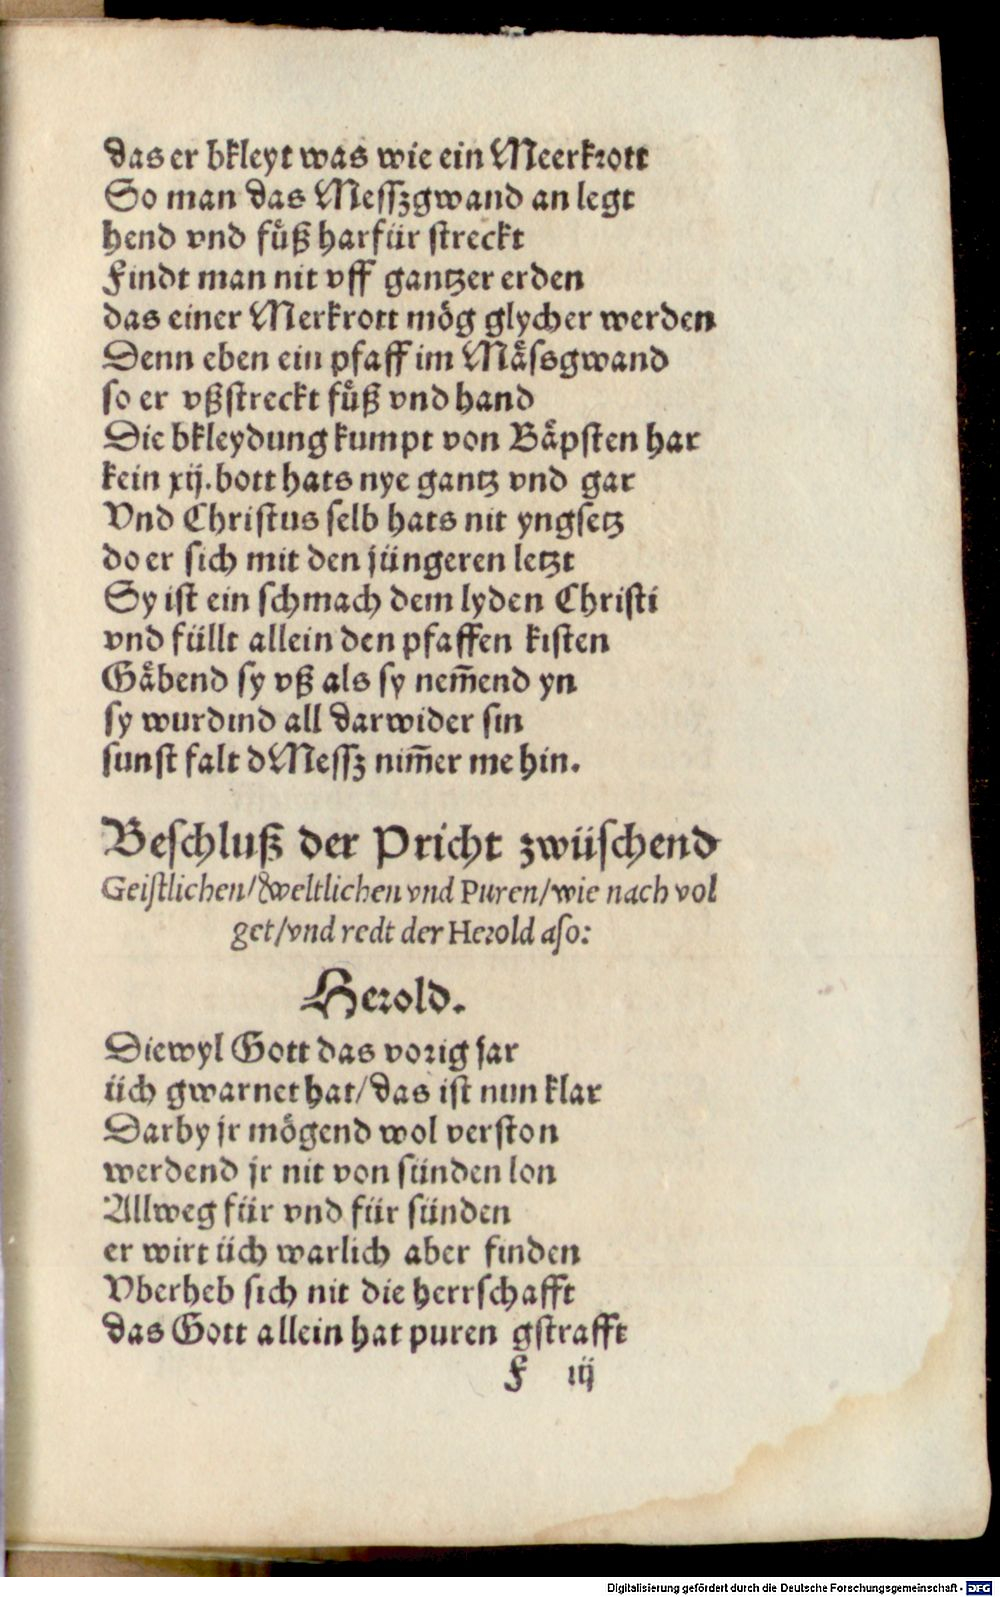 das er bkleyt was wie ein Meerkrott
So man das Messzgwand an legt
hend vnd fuͤß harfür streckt
Findt man nit vff gantzer erden
das einer Merkrott moͤg glycher werden
Denn eben ein pfaff im Maͤssgwand
so er vßstreckt fuͤß vnd hand
Die bkleydung kumpt von Baͤpsten har
kein xij. bott hats nye gantz vnd gar
Vnd Christus selb hats nit yngsetz
do er sich mit den jüngeren letzt
Sy ist ein schmach dem lyden Christi
vnd füllt allein den pfaffen kisten
Gaͤbend sy vß als sy nem̄end yn
sy wurdind all darwider sin
sunst falt d Messz nim̄er me hin.
Beschluß der Pricht zwüschend
Geistlichen/ & weltlichen vnd Puren/ wie nach vol
get/ vnd redt der Herold aso:
Herold.
Diewyl Gott das vorig jar
üch gwarnet hat/ das ist nun klar
Darby jr moͤgend wol verston
werdend jr nit von sünden lon
Allweg für vnd für sünden
er wirt üch warlich aber finden
Vberheb sich nit die herrschafft
das Gott allein hat puren gstrafft
F iij
Digitalisierung gefördert durch die Deutsche Forschungsgemeinschaft - DFG